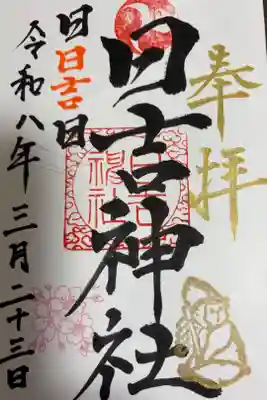 奉拝
日吉神社
日日吉日
令和八年三月二十三日